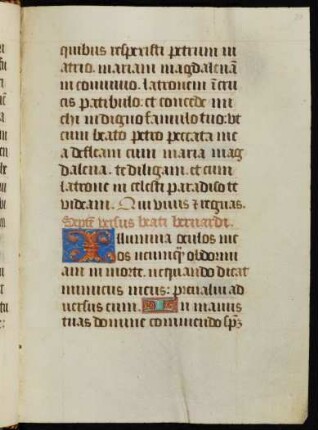 quibus respexisti petrum in
atrio. mariam magdalenā
in conuiuio. latronem ī cru
cis patibulo. et concede mi
chi indigno famulo tuo: vt
cum beato petro peccata me
a defleam cum maria mag
dalena. te diligam. et cum
latrone in celesti paradiso te
videam. Qui viuis & regnas.
Septē versus beati bernardi.
Illumina oculos me
os ne unqꝫ obdormi
am in morte. ne quando dicat
inimicus meus: preualui ad
uersus eum. In manus
tuas domine commendo spꝫ